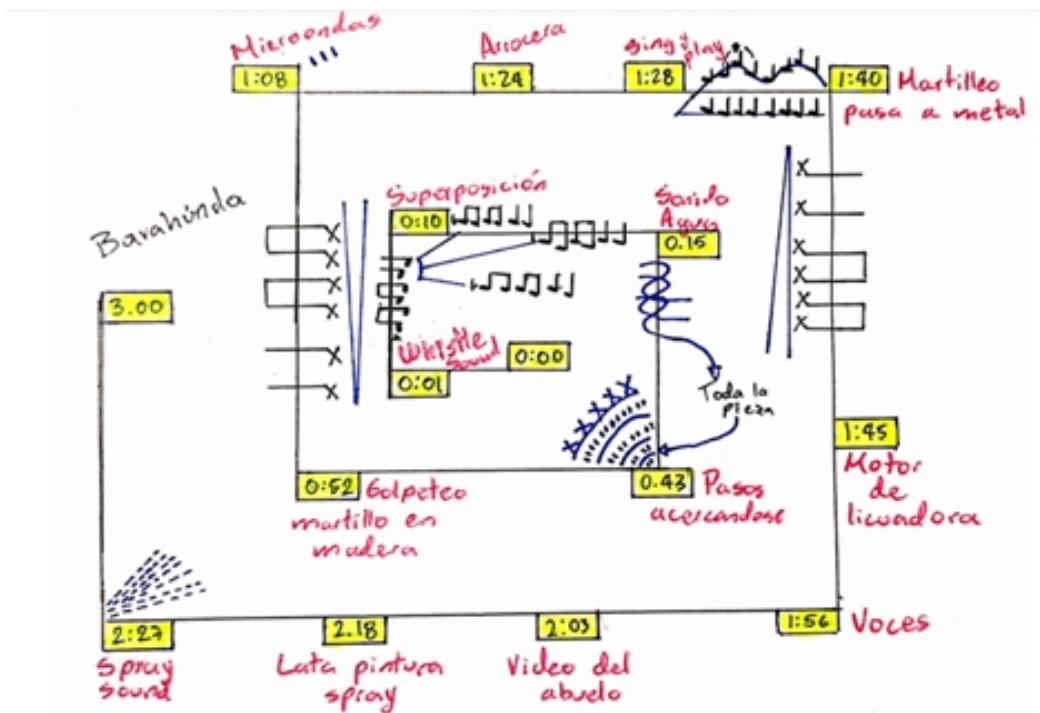 Microondas
1:08
Arrocera
1:24
sing y
play
1:28
1:40
Martilleo
pasa a metal
Barahúnda
Superposición
0:10
Sonido
Agua
0.15
3.00
Whistle
sound
0:00
0:01
Toda la
pieza
1:45
Motor
de
licuadora
0:52
Golpeteo
martillo en
madera
0.43
Pasos
acercandose
2:27
Spray
sound
2.18
Lata pintura
spray
2:03
Video del
abuelo
1:56
Voces